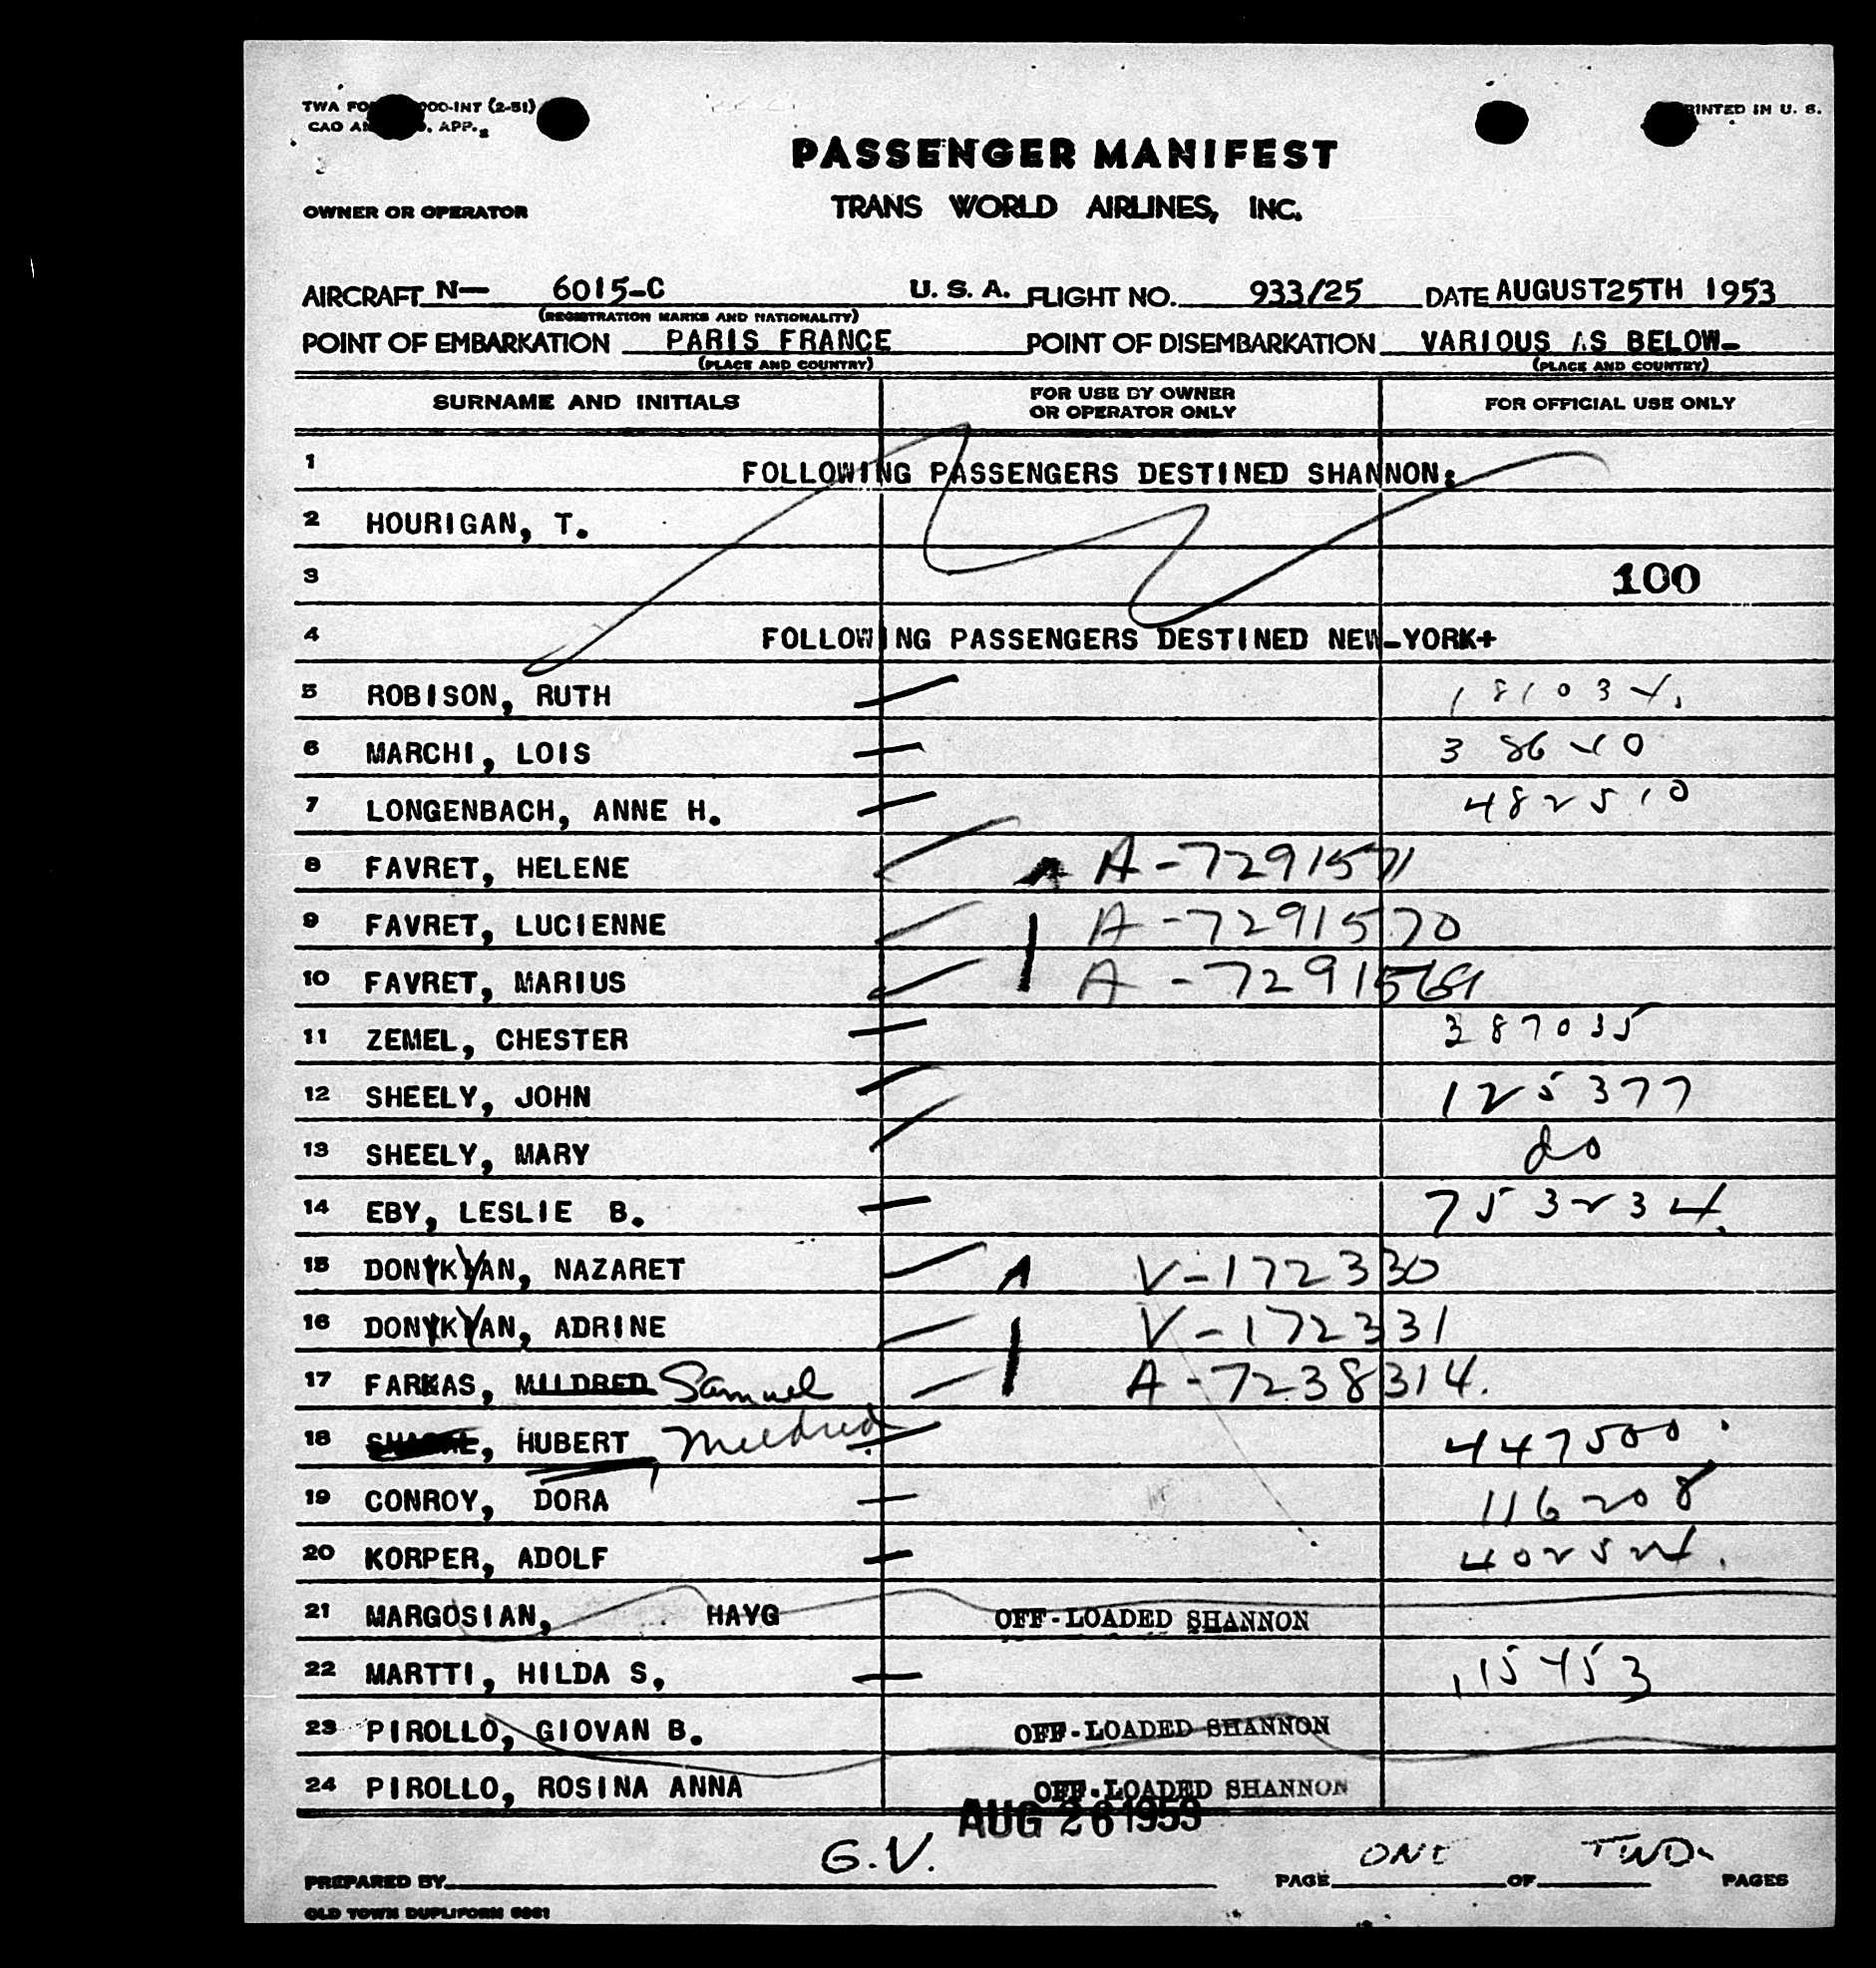 TWA FO 000-INT (2-51)
CAO AN . APP.
PRINTED IN U. S.
PASSENGER MANIFEST
OWNER OR OPERATOR
TRANS WORLD AIRLINES, INC.
AIRCRAFT N— 6015-C U. S. A. FLIGHT NO. 933/25 DATE AUGUST25TH 1953
(REGISTRATION MARKS AND NATIONALITY)
POINT OF EMBARKATION PARIS FRANCE POINT OF DISEMBARKATION VARIOUS AS BELOW-
(PLACE AND COUNTRY) (PLACE AND COUNTRY)
SURNAME AND INITIALS FOR USE BY OWNER OR OPERATOR ONLY FOR OFFICIAL USE ONLY
1 FOLLOWING PASSENGERS DESTINED SHANNON:
2 HOURIGAN, T.
3 100
4 FOLLOWING PASSENGERS DESTINED NEW-YORK+
5 ROBISON, RUTH 181034
6 MARCHI, LOIS
7 LONGENBACH, ANNE H. 482510
8 FAVRET, HELENE A-7291571
9 FAVRET, LUCIENNE A-7291570
10 FAVRET, MARIUS A-7291569
11 ZEMEL, CHESTER 387035
12 SHEELY, JOHN 125377
13 SHEELY, MARY do
14 EBY, LESLIE B. 753234
15 DONYKYAN, NAZARET V-172330
16 DONYKYAN, ADRINE V-172331
17 FARKAS, MILDRED Samuel A-7238314.
18 , HUBERT, Mildred 447500
19 CONROY, DORA 116208
20 KORPER, ADOLF 402524.
21 MARGOSIAN, HAYG OFF-LOADED SHANNON
22 MARTTI, HILDA S, 115453
23 PIROLLO, GIOVAN B. OFF-LOADED SHANNON
24 PIROLLO, ROSINA ANNA OFF-LOADED SHANNON
AUG 26 1953
PREPARED BY G.V. PAGE ONE OF TWO PAGES
OLD TOWN DUPLIFORM